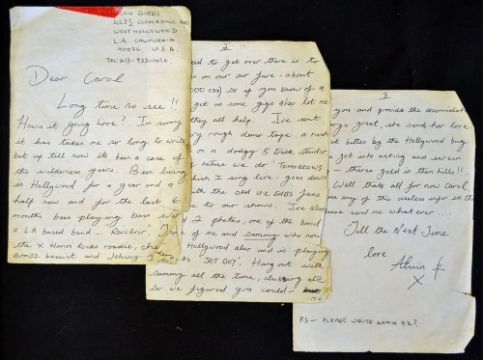 ALVIN GIBBS
WEST HOLLYWOOD
L.A. CALIFORNIA
90036 U.S.A.
Dear Carol
Long time no see!!
How's it going Love? I'm sorry
it has taken me so long to write
but up till now its been a case of
the wilderness years. Been living
in Hollywood for a year and a
half now and for the last 6
months been playing bass with
a L.A based band
the X Hanoi Rocks roadie,
and Johnny
2
need to get over there is to
on our air fare - about
so if you know of a
get us some gigs also let me
they all help. I've sent
very rough demo tape, a rush
on a dodgy 8 track studio
we do TOMORROWS
which I sing live, goes down
with the old UK SUBS fans
to our shows. I've also
2 photos, one of the band
of me and sammy who now
Hollywood also and is playing
JET BOY. Hang out with
sammy all the time, clubbing etc
so we figured you could -
3
you and provide the
great, she sends her love
bitten by the Hollywood bug
get into acting and screen
- theres gold in them hills!!.
Well thats all for now Carol
any of the waters info in the
send me what ever....
Till the Next Time
love
Alvin
X
PS - PLEASE WRITE SOON O.K?